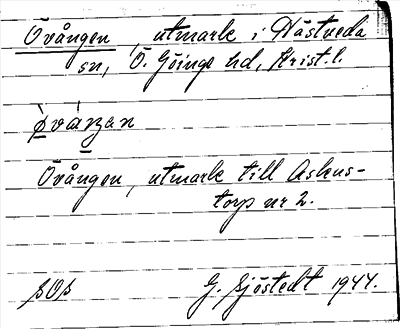 Övången, utmark i Hästveda
sn, Ö. Göinge hd, Krist. l.
Övången, utmark till Askus-
torp nr 2.
G. Sjöstedt 1944.